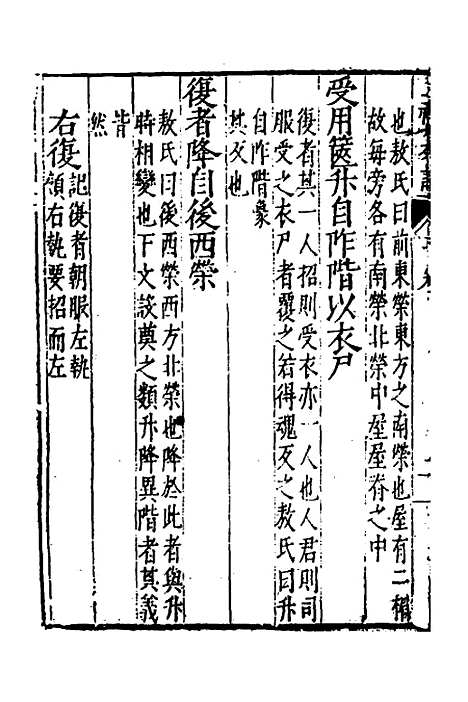 也敖氏曰前東榮東方之南榮也屋有二檐
故每旁各有南榮北榮中屋屋脊之中
受用篋升自阼階以衣尸
復者其一人招則受衣亦一人也人君則司
服受之衣尸者覆之若得魂反之敖氏曰升
自阼階象
其反也
復者降自後西榮
敖氏曰後西榮西方北榮也降於此者與升
時相變也下文設奠之類升降異階者其義
皆
然
右復記復者朝服左執
領右執要招而左